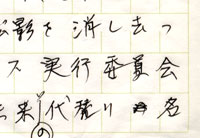 影を消し去っ
ス実行委員会
の代替り名